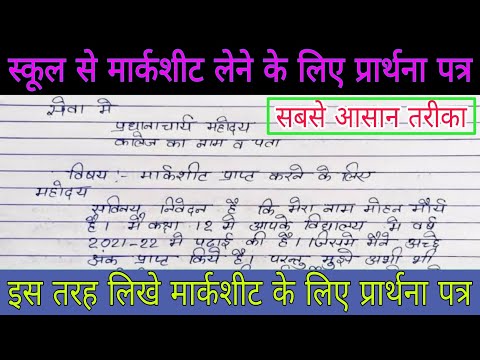 स्कूल से मार्कशीट लेने के लिए प्रार्थना पत्र
सबसे आसान तरीका
सेवा में
प्रधानाचार्य महोदय
कालेज का नाम व पता
विषय :- मार्कशीट प्राप्त करने के लिए
महोदय
सविनय निवेदन है कि मेरा नाम मोहन मौर्य
है। मैं कक्षा 12 में आपके विद्यालय में वर्ष
2021-22 में पढ़ाई की है। जिसमें मैंने अच्छे
अंक प्राप्त किये है। परन्तु मुझे अभी भी
इस तरह लिखे मार्कशीट के लिए प्रार्थना पत्र